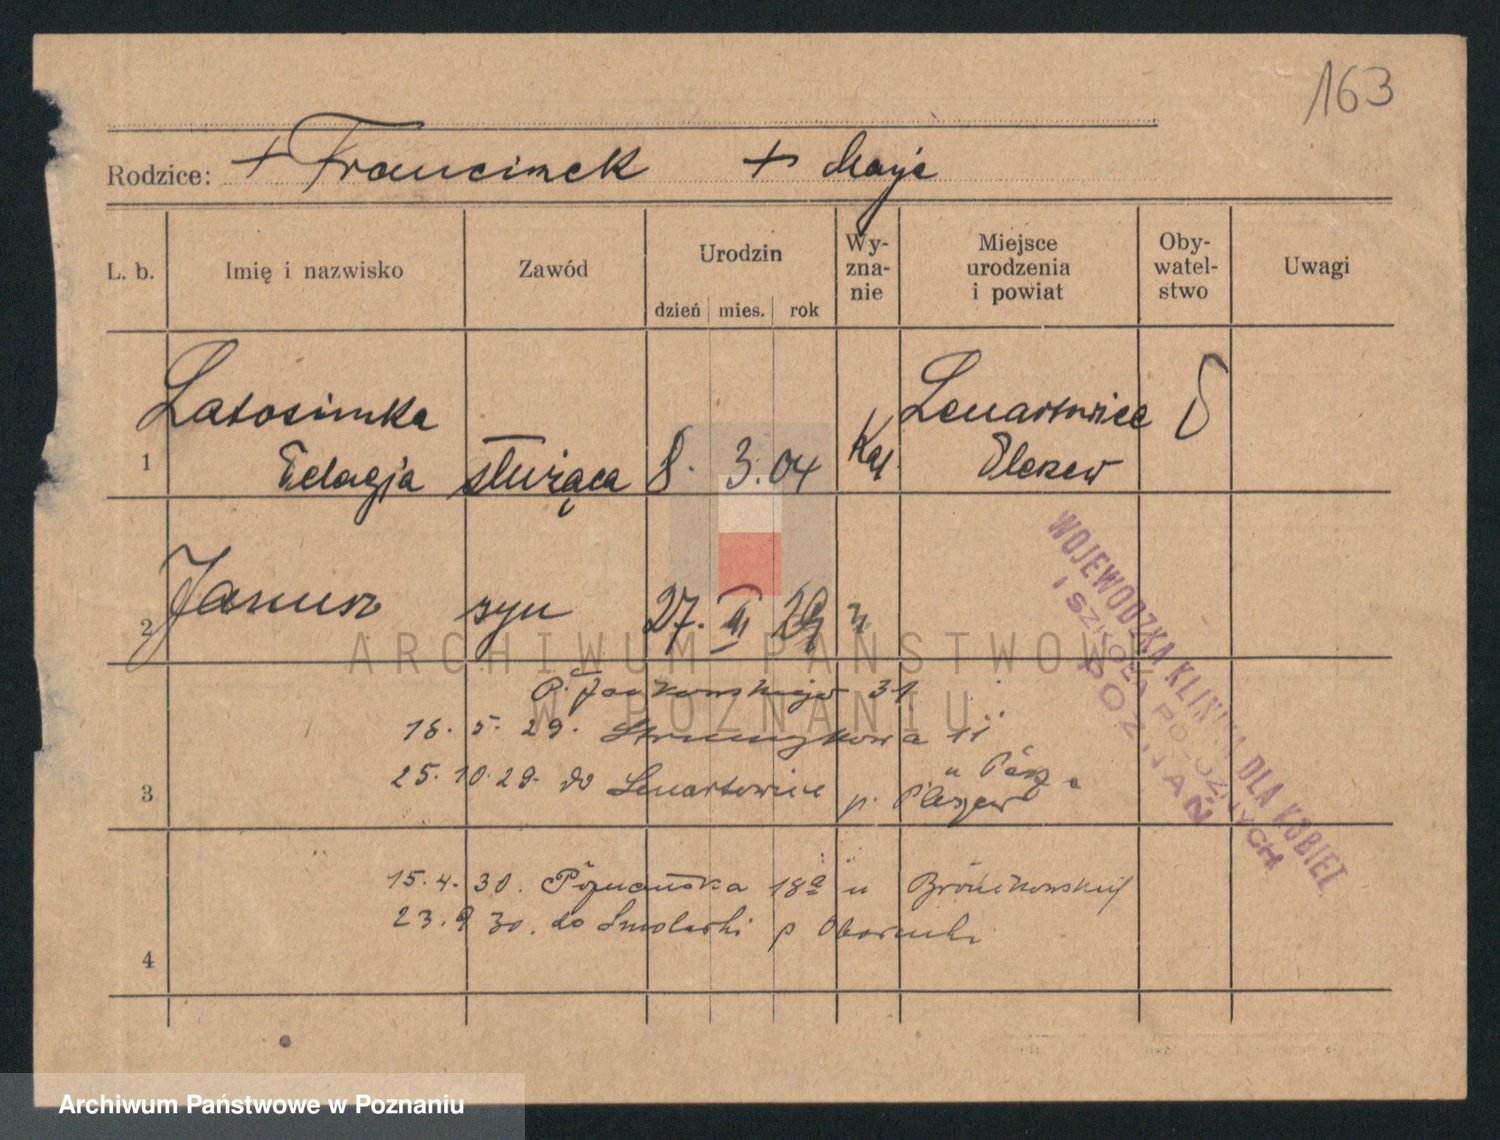 163
Rodzice: + Franciszek + Marja
L. b.
Imię i nazwisko
Zawód
Urodzin
dzień mies. rok
Wy-
zna-
nie
Miejsce
urodzenia
i powiat
Oby-
watel-
stwo
Uwagi
Latosinska Lenartowice
1 Pelagja służąca 8. 3. 04 Kat. Pleszew
2 Janusz syn 27. III 29
18. 5. 29. 11
25. 10. 29. do Lenartowice p. Pleszew
3
15. 4. 30. Poznańska 18a u Bronikowskiej
23. 9 30. do Smolarki p Oborniki
4
WOJEWÓDZKA KLINIKA DLA KOBIET
I SZKOŁA POŁOŻNYCH
POZNAŃ
ARCHIWUM PAŃSTWOWE
W POZNANIU
Archiwum Państwowe w Poznaniu